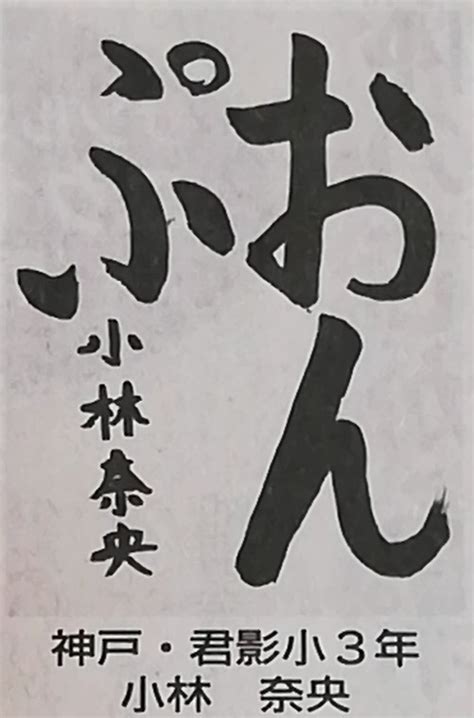 おん
ぷ
小林奈央
神戸・君影小3年
小林　奈央